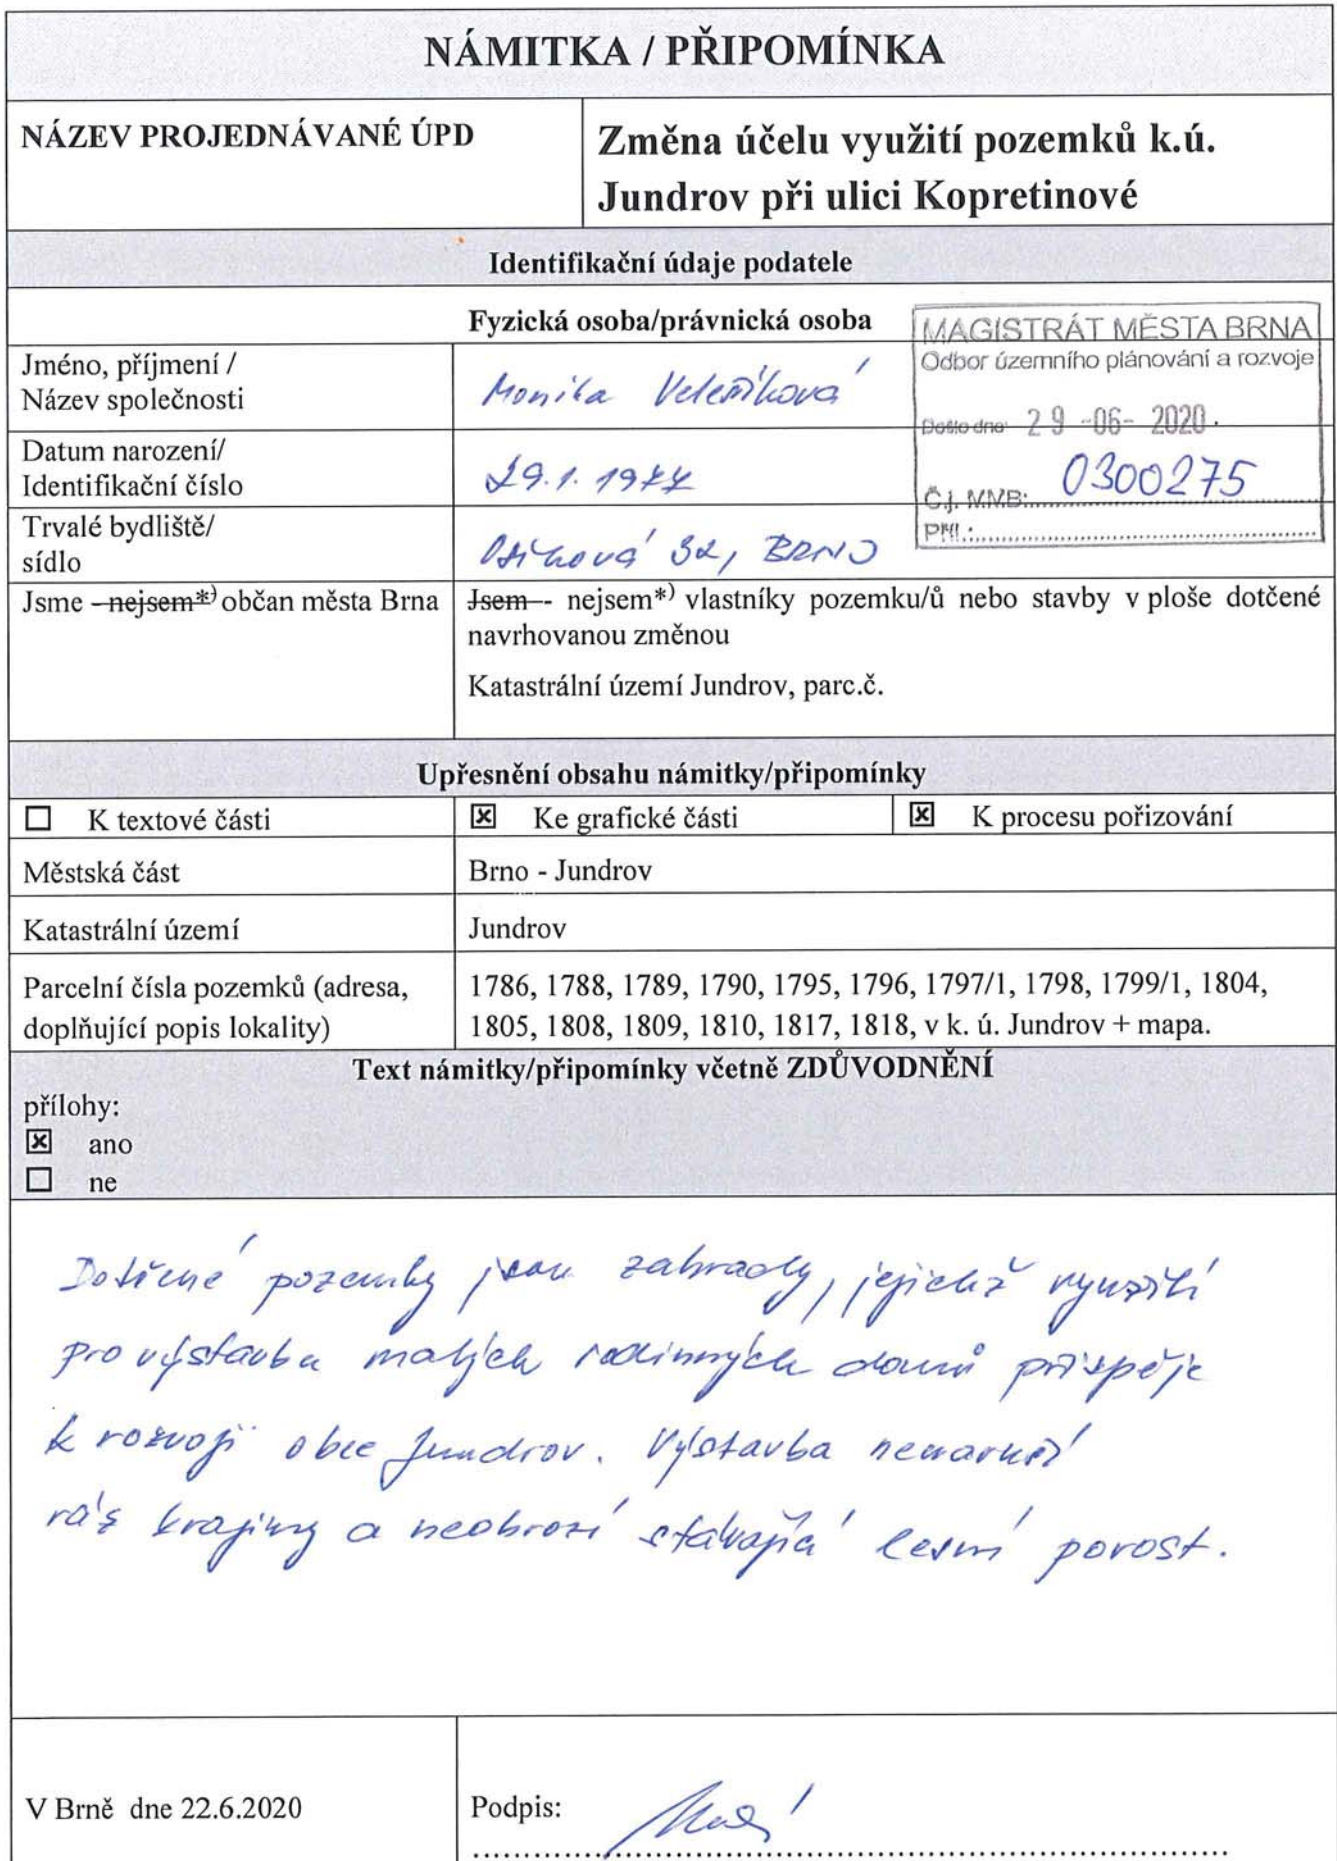 NÁMITKA / PŘIPOMÍNKA
NÁZEV PROJEDNÁVANÉ ÚPD
Změna účelu využití pozemků k.ú.
Jundrov při ulici Kopretinové
Identifikační údaje podatele
Fyzická osoba/právnická osoba
MAGISTRÁT MĚSTA BRNA
Odbor územního plánování a rozvoje
Došlo dne: 29 -06- 2020
Č.j. MMB: 0300275
Příl.:
Jméno, příjmení /
Název společnosti
Monika
Datum narození/
Identifikační číslo
29.1.1977
Trvalé bydliště/
sídlo
32, BRNO
Jsme - nejsem*) občan města Brna
Jsem - nejsem*) vlastníky pozemku/ů nebo stavby v ploše dotčené
navrhovanou změnou
Katastrální území Jundrov, parc.č.
Upřesnění obsahu námitky/připomínky
☐ K textové části
☒ Ke grafické části
☒ K procesu pořizování
Městská část
Brno - Jundrov
Katastrální území
Jundrov
Parcelní čísla pozemků (adresa,
doplňující popis lokality)
1786, 1788, 1789, 1790, 1795, 1796, 1797/1, 1798, 1799/1, 1804,
1805, 1808, 1809, 1810, 1817, 1818, v k. ú. Jundrov + mapa.
Text námitky/připomínky včetně ZDŮVODNĚNÍ
přílohy:
☒ ano
☐ ne
Dotčené pozemky jsou zahrady, jejichž využití
pro výstavbu malých rodinných domů přispěje
k rozvoji obce Jundrov. Výstavba nenaruší
ráz krajiny a neohrozí stávající lesní porost.
V Brně dne 22.6.2020
Podpis: